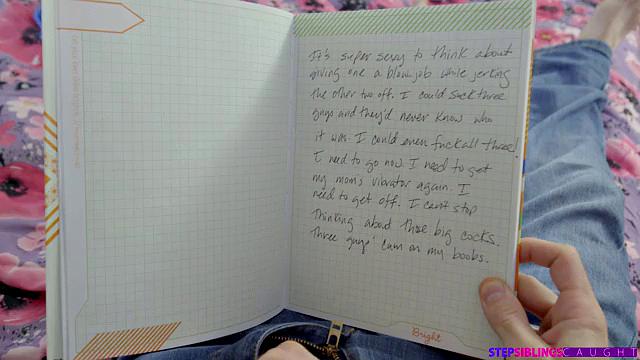 It's super sexy to think about
giving one a blowjob while jerking
the other two off. I could suck three
guys and they'd never know who
it was. I could even fuck all three!
I need to go now. I need to get
my mom's vibrator again. I
need to get off. I can't stop
thinking about those big cocks.
Three guys' cum on my boobs.
Bright
STEPSIBLINGSCAUGHT